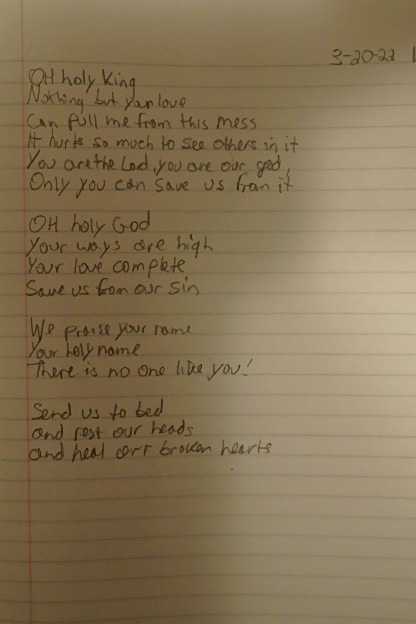 3-20-22
OH holy King
Nothing but your love
Can pull me from this mess
It hurts so much to see others in it
You are the Lord, you are our god,
Only you can save us from it
OH holy God
Your ways are high
Your love complete
Save us from our sin
We praise your name
Your holy name
There is no one like you!
Send us to bed
and rest our heads
and heal our broken hearts